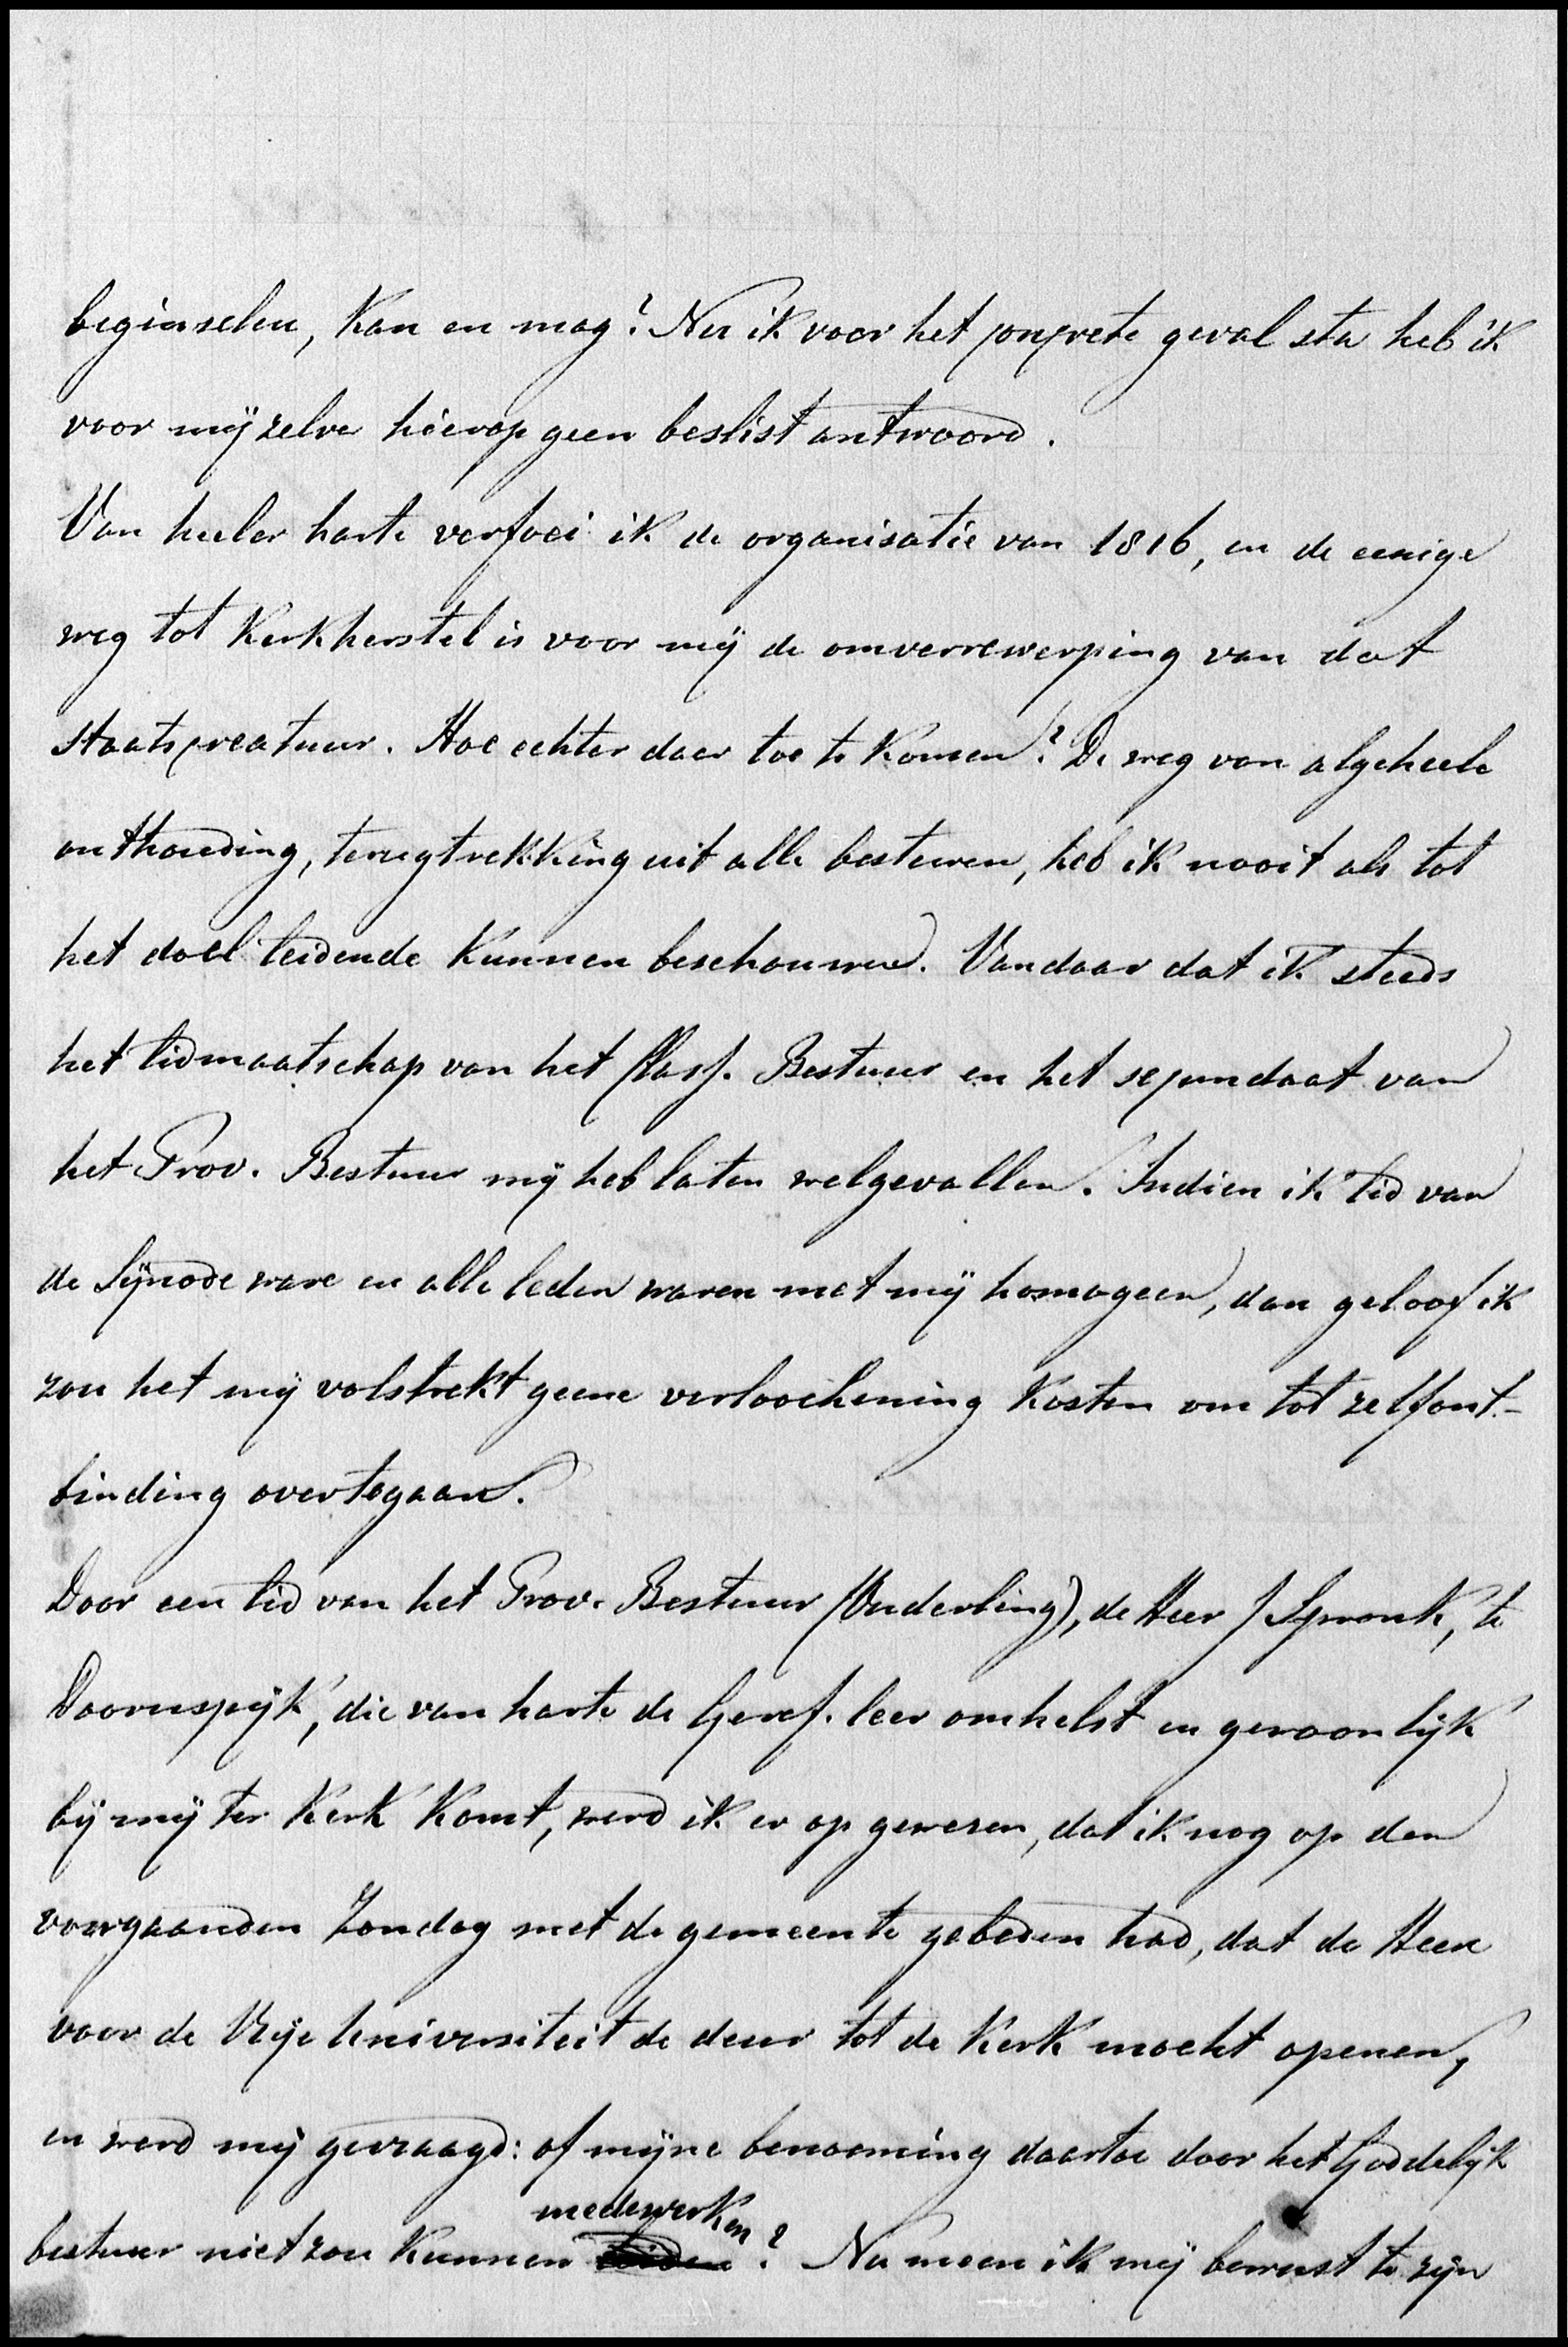 beginselen, kan en mag? Nu ik voor het concrete geval sta heb ik
voor mijzelve hierop geen beslist antwoord.
Van heeler harte verfoei ik de organisatie van 1816, en de eenige
weg tot Kerkherstel is voor mij de omverrewerping van dat
staatscreatuur. Hoe echter daar toe te komen? De weg van algeheele
onthouding, terugtrekking uit alle besturen, heb ik nooit als tot
het doel leidende kunnen beschouwen. Vandaar dat ik steeds
het lidmaatschap van het Class. Bestuur en het secundaat van
het Prov. Bestuur mij heb laten welgevallen. Indien ik lid van
de Sijnode ware en alle leden waren met mij homogeen, dan geloof ik
zou het mij volstrekt geene verloochening kosten om tot zelfont-
binding overtegaan.
Door een lid van het Prov. Bestuur (Ouderling), de Heer J Spronk, te
Doornspijk, die van harte de Geref. leer omhelst en gewoonlijk
bij mij ter Kerk komt, werd ik er op gewezen, dat ik nog op den
voorgaanden Zondag met de gemeente gebeden had, dat de Heere
voor de Vrije Universiteit de deur tot de Kerk mocht openen,
en werd mij gevraagd: of mijne benoeming daartoe door het Goddelijk
bestuur niet zou kunnen medewerken? Nu meen ik mij bewust te zijn